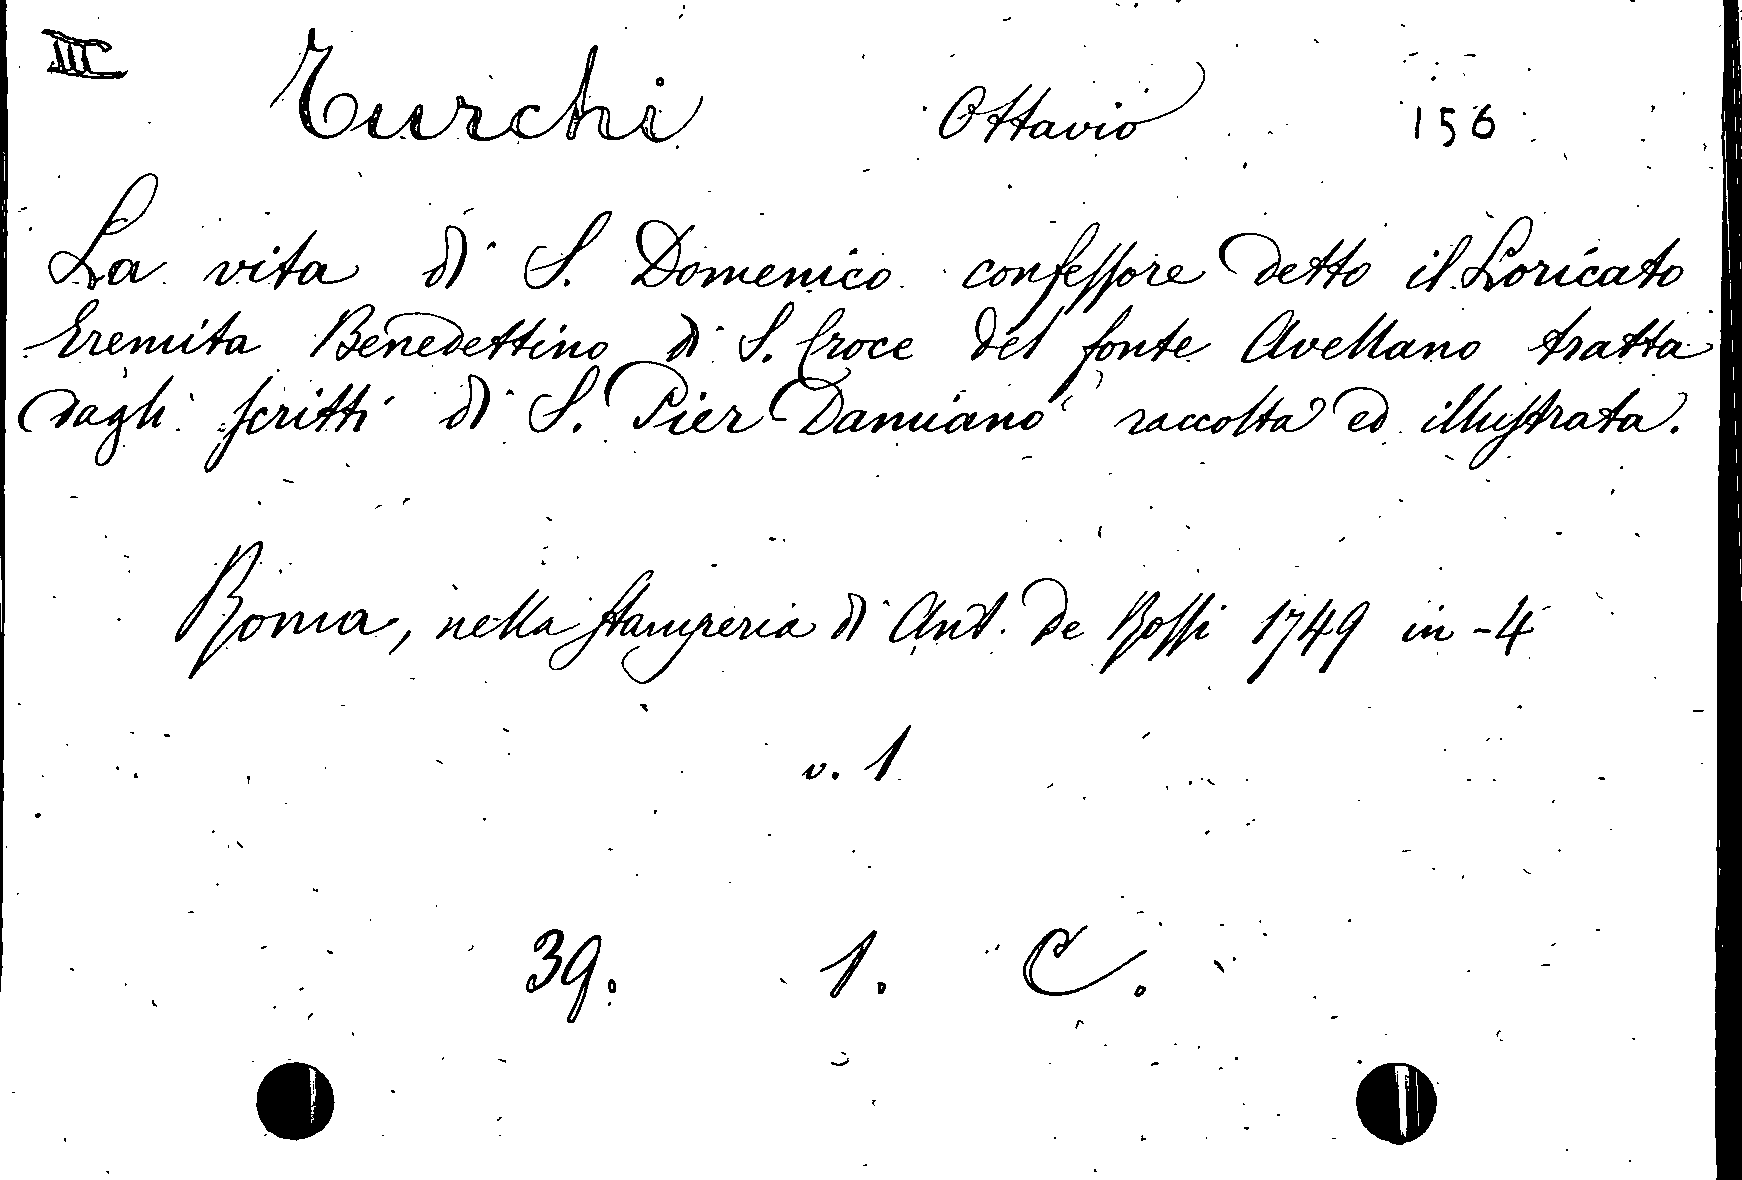 III Turchi Ottavio 156
La vita di S. Domenico confessore detto il Loricato
Eremita Benedettino di S. Croce del fonte Avellano tratta
dagli scritti di S. Pier Damiano raccolta ed illustrata.
Roma, nella stamperia di Ant. de Rossi 1749 in-4
v. 1
39. 1. C.